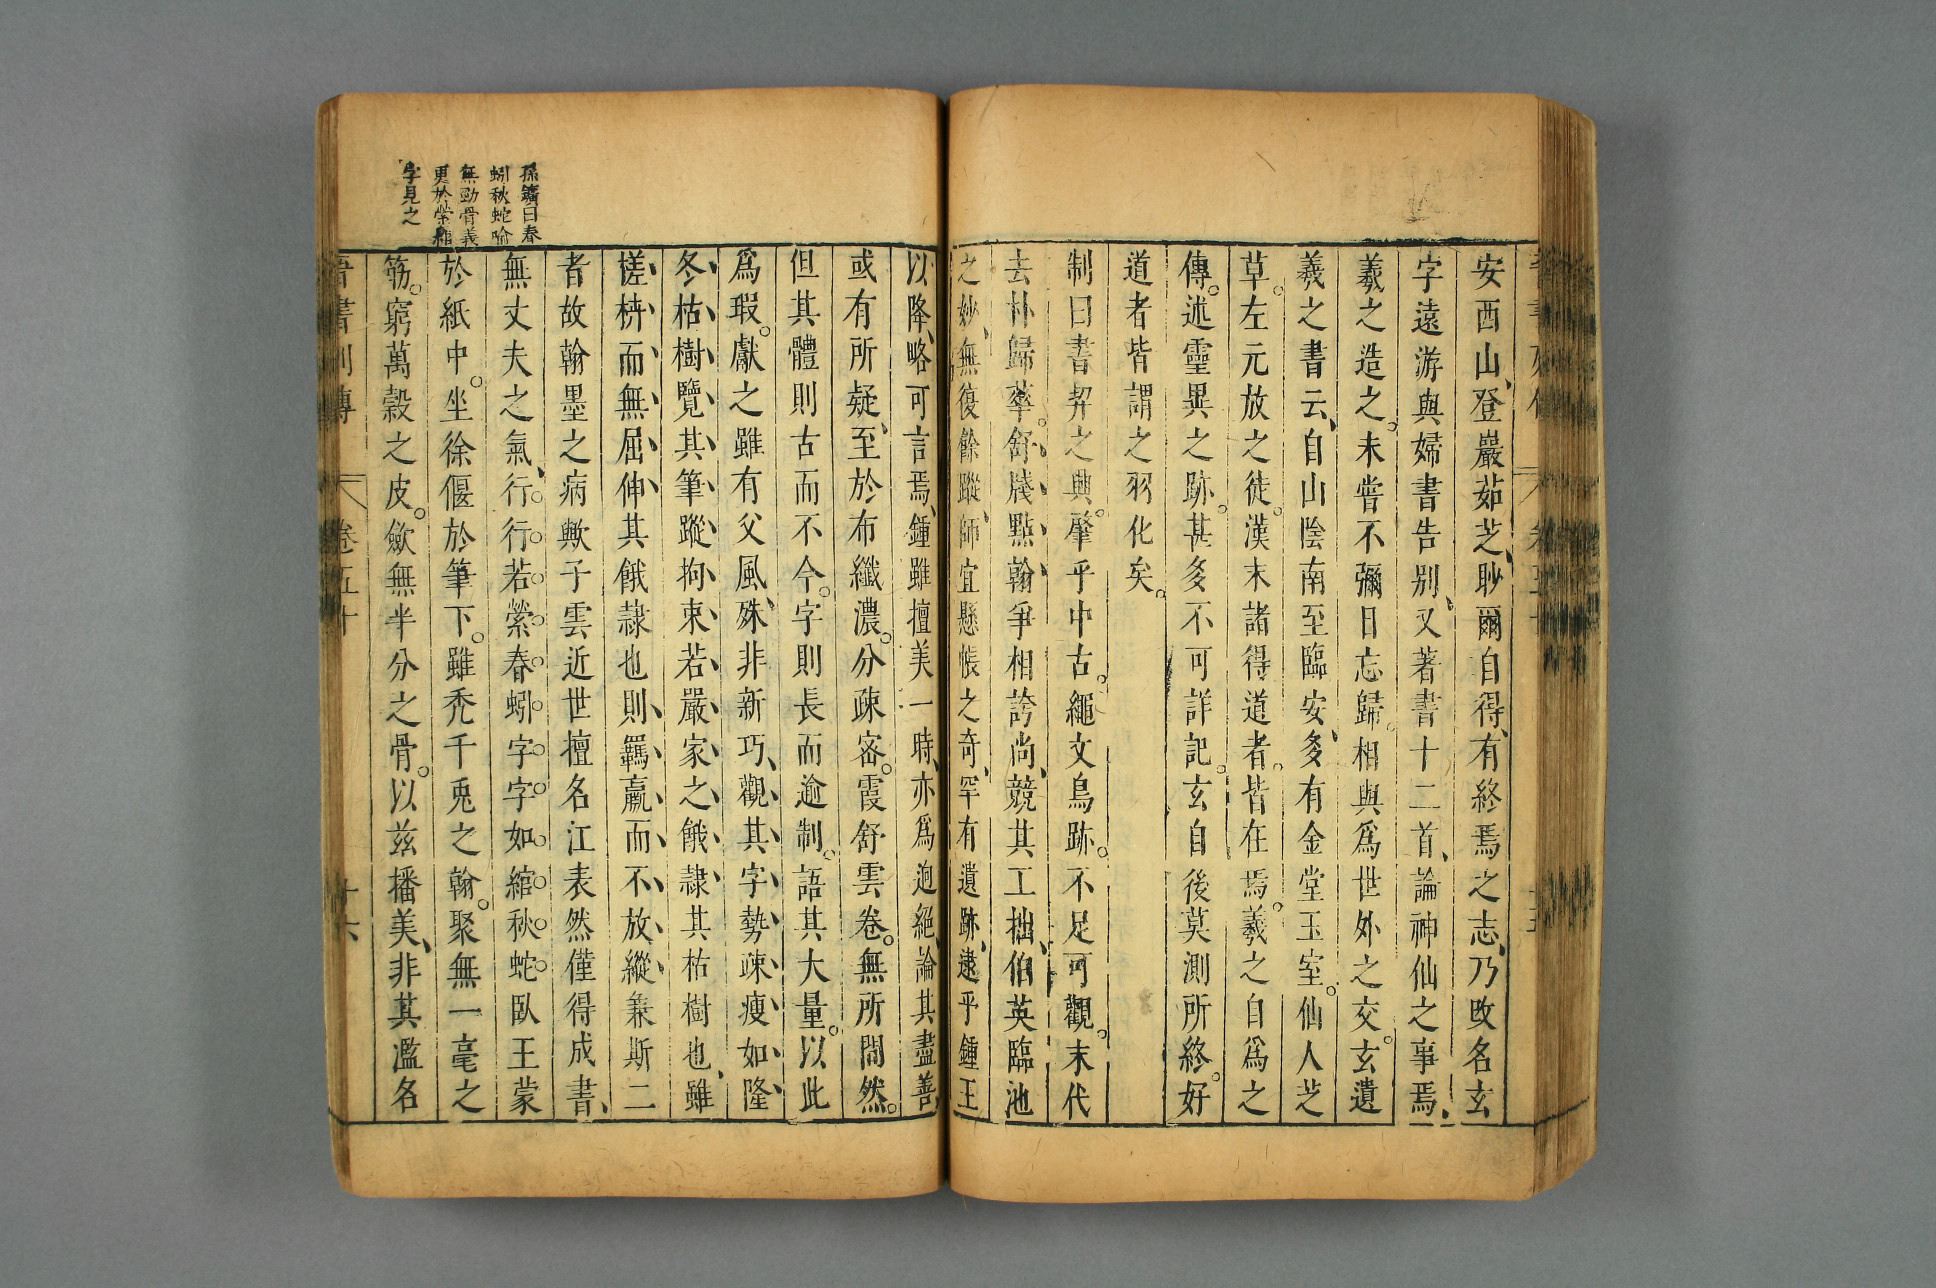 安西山、登巖茹芝、眇爾自得、有終焉之志、乃改名玄
字遠游與婦書告別、又著書十二首、論神仙之事焉、
羲之造之。未嘗不彌日忘歸。相與爲世外之交。玄遺
羲之書云、自山陰南至臨安、多有金堂玉室。仙人芝
草。左元放之徒。漢末諸得道者。皆在焉。羲之自爲之
傳。述靈異之跡。甚多不可詳記。玄自後莫測所終。好
道者皆謂之羽化矣。
制曰書契之興。肇乎中古。繩文鳥跡。不足可觀。末代
去朴歸華。舒牋點翰爭相誇尚、競其工拙、伯英臨池
之妙、無復餘蹤、師宜懸帳之奇、罕有遺跡、逮乎鍾王
以降、略可言焉、鍾雖擅美一時、亦爲迥絕、論其盡善、
或有所疑、至於布纖濃。分疎密。霞舒雲卷。無所間然。
但其體則古而不今。字則長而逾制。語其大量。以此
爲瑕。獻之雖有父風、殊非新巧、觀其字勢疎瘦如隆
冬枯樹覽其筆蹤拘束若嚴家之餓隸其枯樹也、雖
槎枿而無屈伸其餓隸也則羈羸而不放縱兼斯二
者故翰墨之病歟子雲近世擅名江表然僅得成書、
無丈夫之氣、行行若縈春蚓字字如綰秋蛇臥王蒙
於紙中。坐徐偃於筆下。雖禿千兎之翰。聚無一毫之
筋。窮萬穀之皮。斂無半分之骨。以茲播美、非其濫名
孫鑛曰春
蚓秋蛇喻
無勁骨義
更於縈綰
字見之
晉書列傳 卷五十 十六